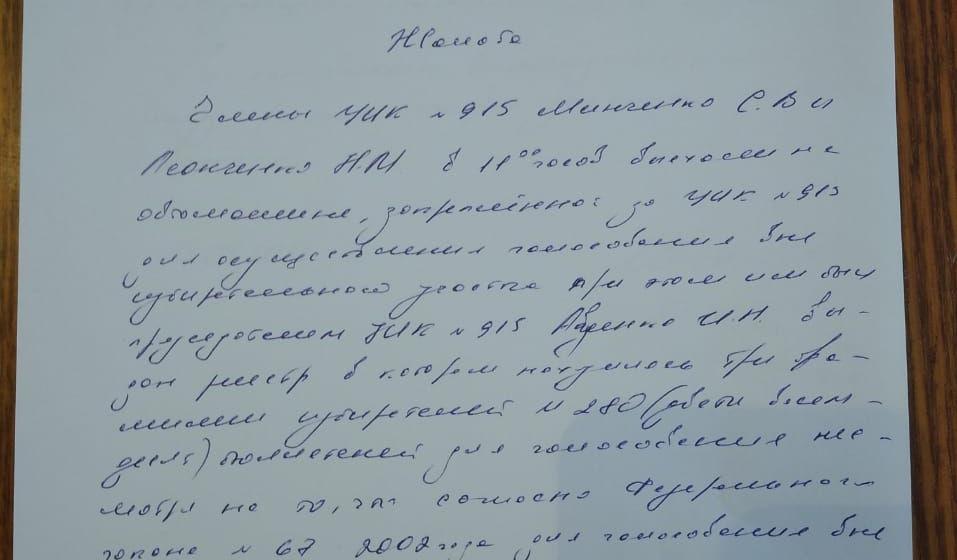 Жалоба
Члены УИК №915 Минченко С.В и
Леонченко Н.М. в 11 00 часов выехали на
автомашине, закреплённой за УИК №915
для осуществления голосования вне
избирательного участка при этом им был
председателем УИК №915 Авденко И.Н. вы-
дан реестр в котором находилось три фа-
милии избирателей и 280 (двести восем-
десят) бюллетеней для голосования нес-
мотря на то, что согласно Федерального
закона №67 2002 года для голосования вне